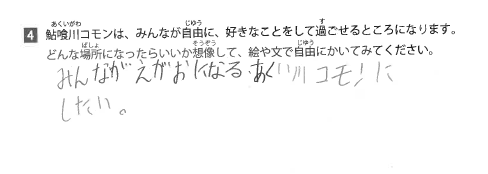 4 鮎喰川コモンは、みんなが自由に、好きなことをして過ごせるところになります。
どんな場所になったらいいか想像して、絵や文で自由にかいてみてください。
みんながえがおになる、あくい川コモンに
したい。